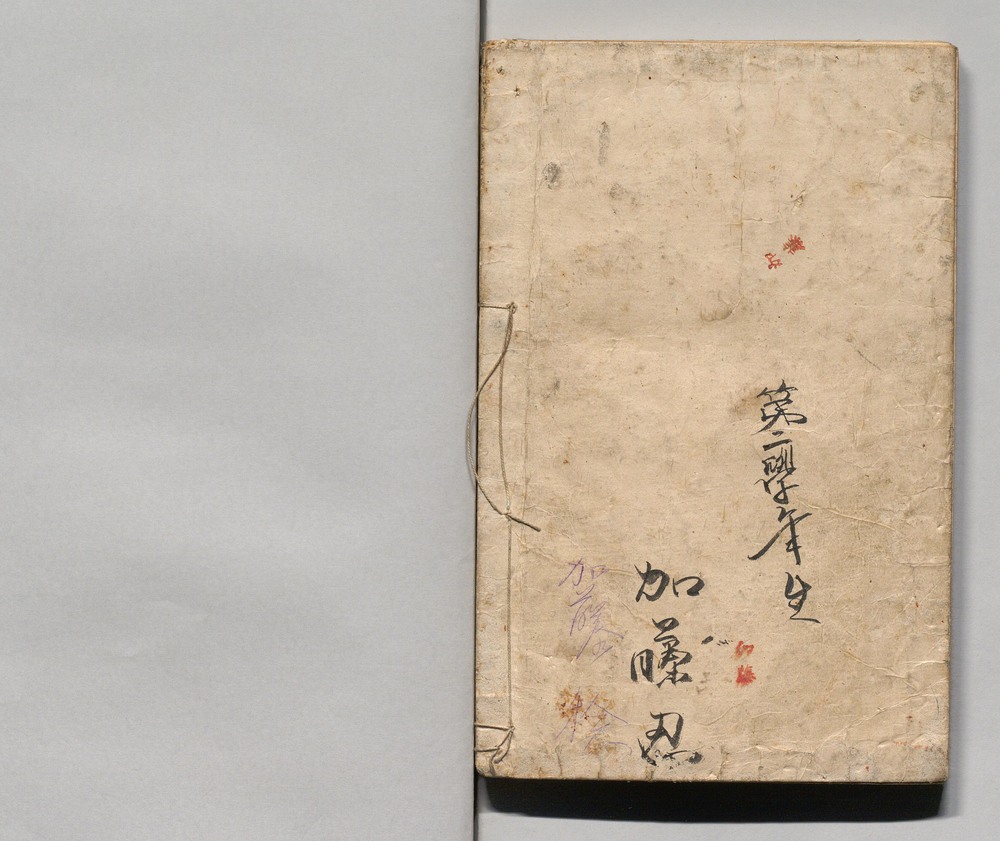 第二學年生
加藤忍
加藤